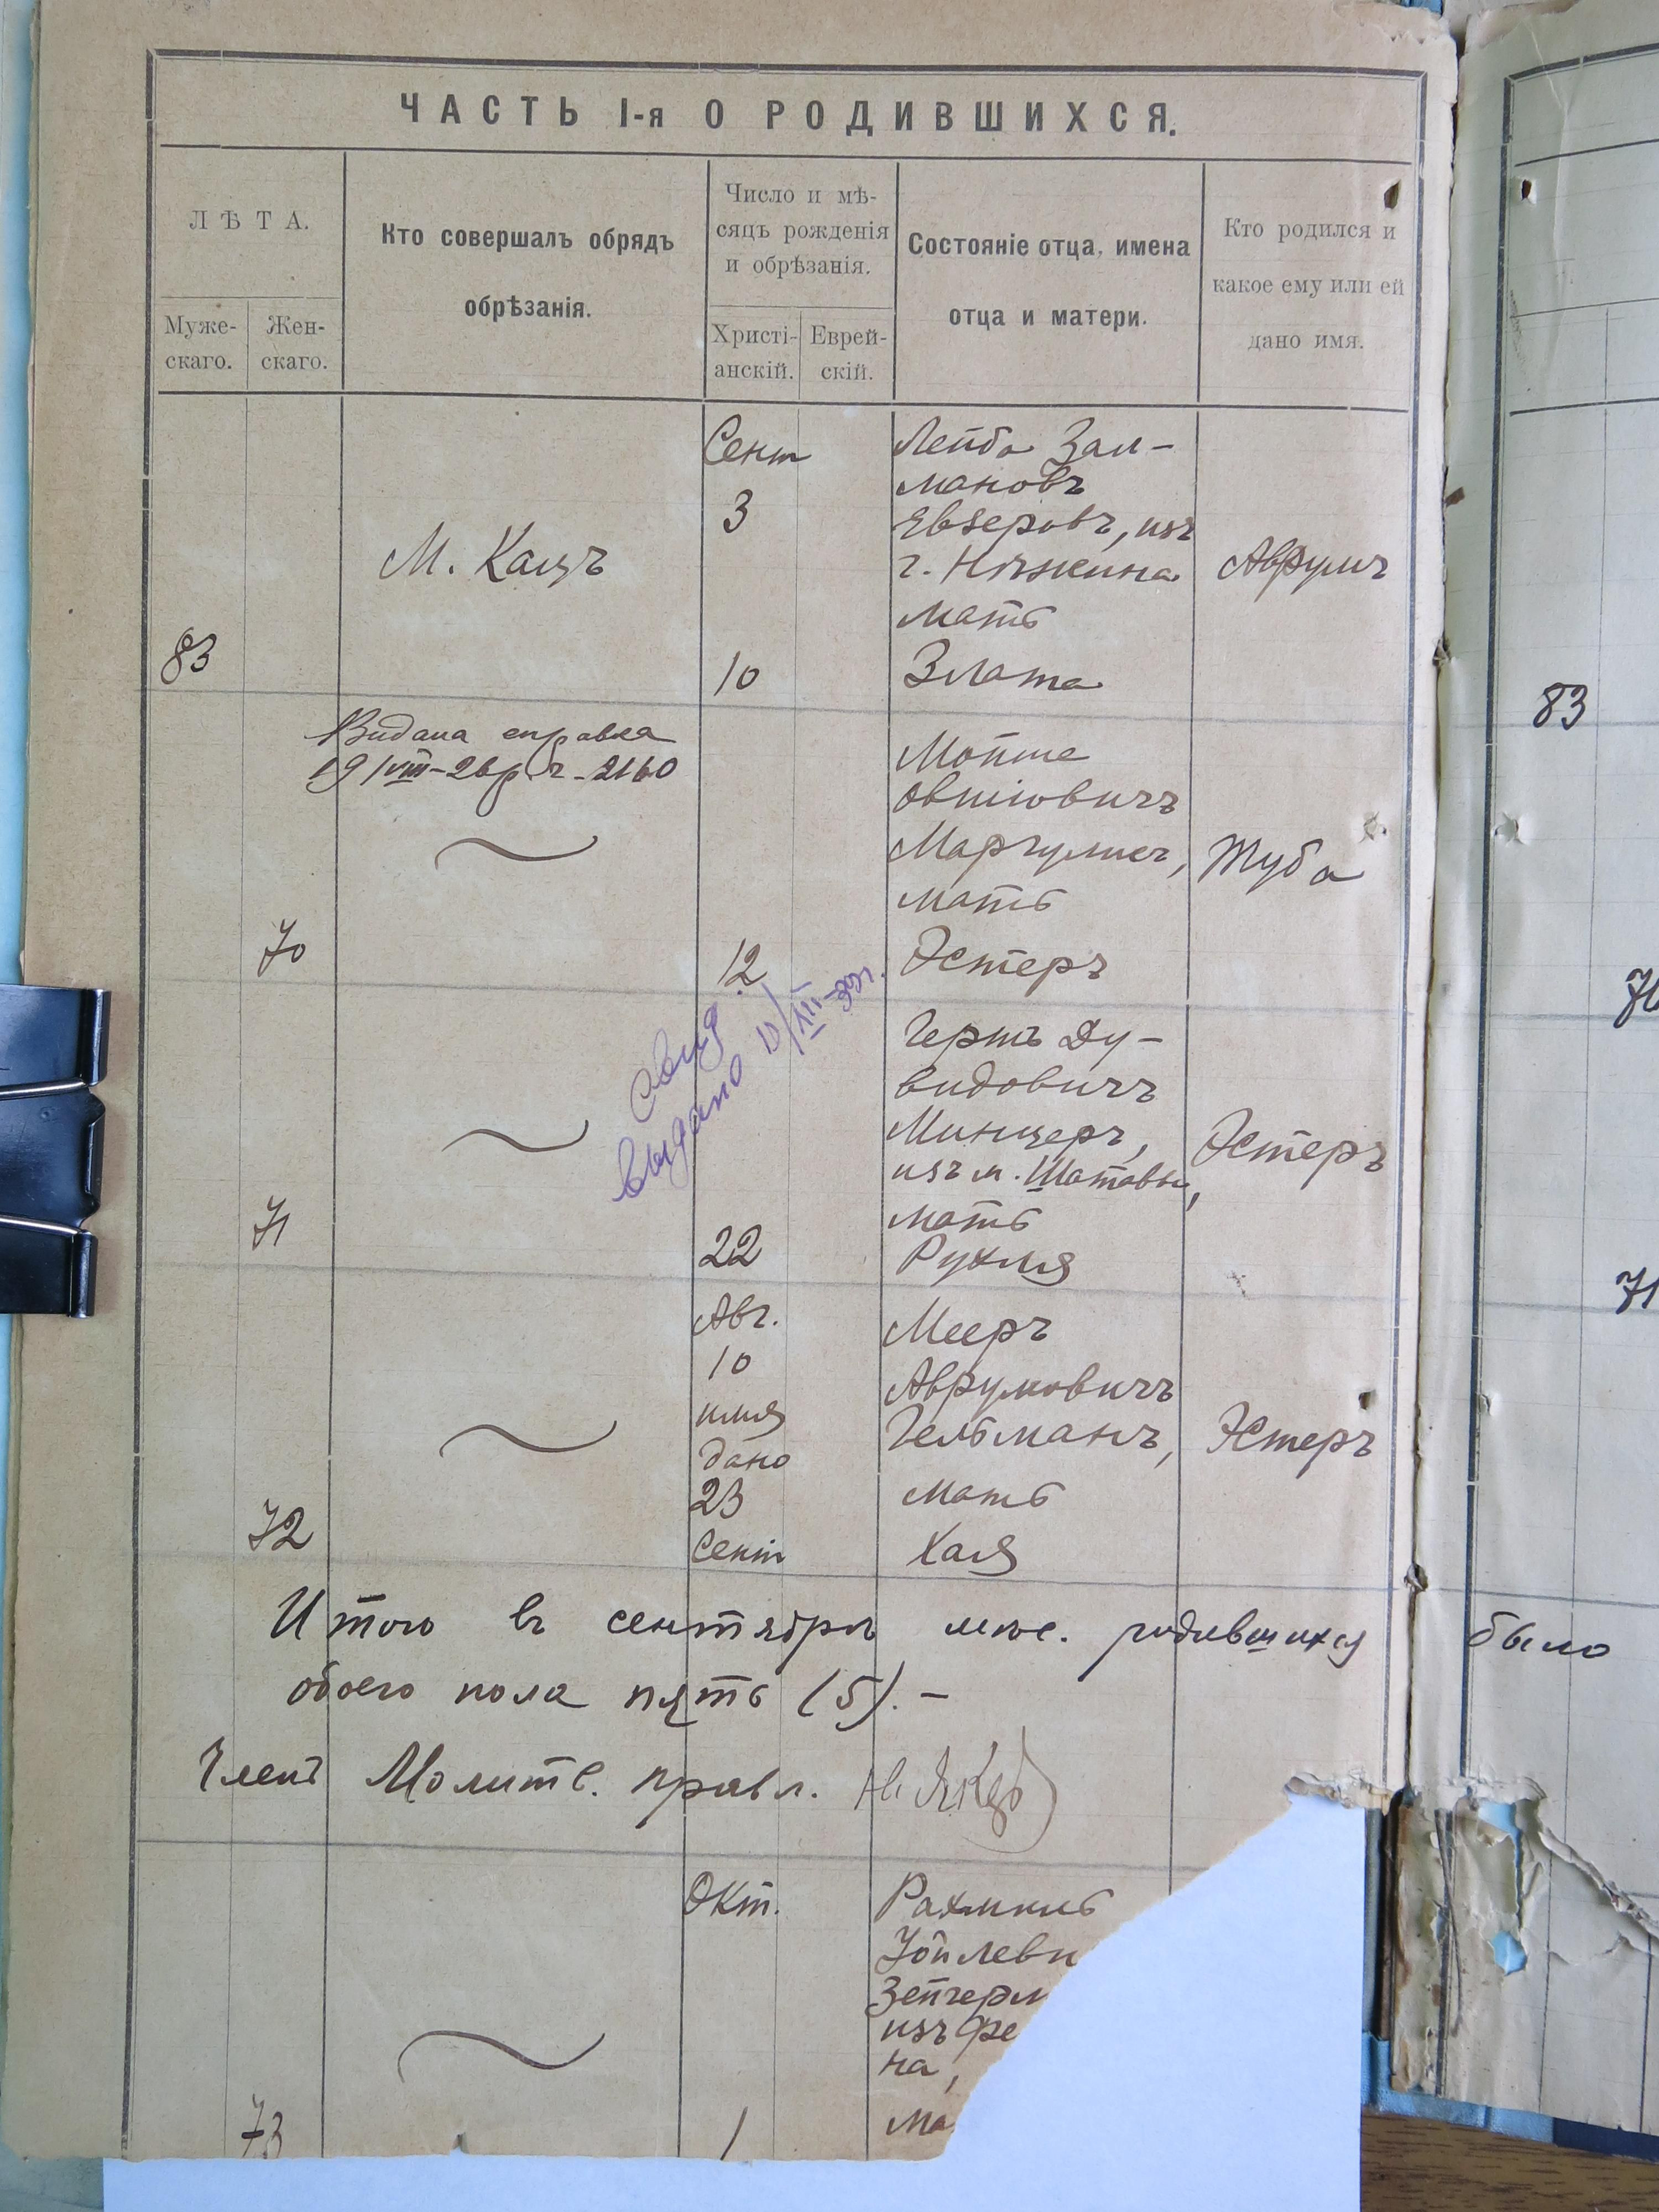 ЧАСТЬ I-я О РОДИВШИХСЯ.
ЛѢТА.
Муже-
скаго.
Жен-
скаго.
Кто совершалъ обрядъ
обрѣзанія.
Число и мѣ-
сяцъ рожденія
и обрѣзанія.
Христі-
анскій.
Еврей-
скій.
Состояніе отца, имена
отца и матери.
Кто родился и
какое ему или ей
дано имя.
83
М. Кацъ
Сент
3
10
Лейба Зал-
мановъ
Евзеровъ, изъ
г. Нѣжина
мать
Злата
Аврумъ
83
Видана справка
19/VIII-26р. г - 2160
70
12
Мойше
Овшіовичъ
Маргулисъ,
мать
Эстеръ
Туба
70
Свид.
выдано 10/VIII-39г.
71
22
Гершъ Ду-
видовичъ
Минцеръ,
изъ м. Шатавы,
мать
Рухля
Эстеръ
71
72
Авг.
10
имя
дано
23
Сент
Мееръ
Аврумовичъ
Гельманъ,
мать
Хая
Эстеръ
Итого въ сентябрѣ мѣс. родившихся было
обоего пола пять (5). -
Членъ Молитв. правл.
73
Окт.
1
Рахмиль
Іойлеви
Зейгерм
изъ
на,
ма